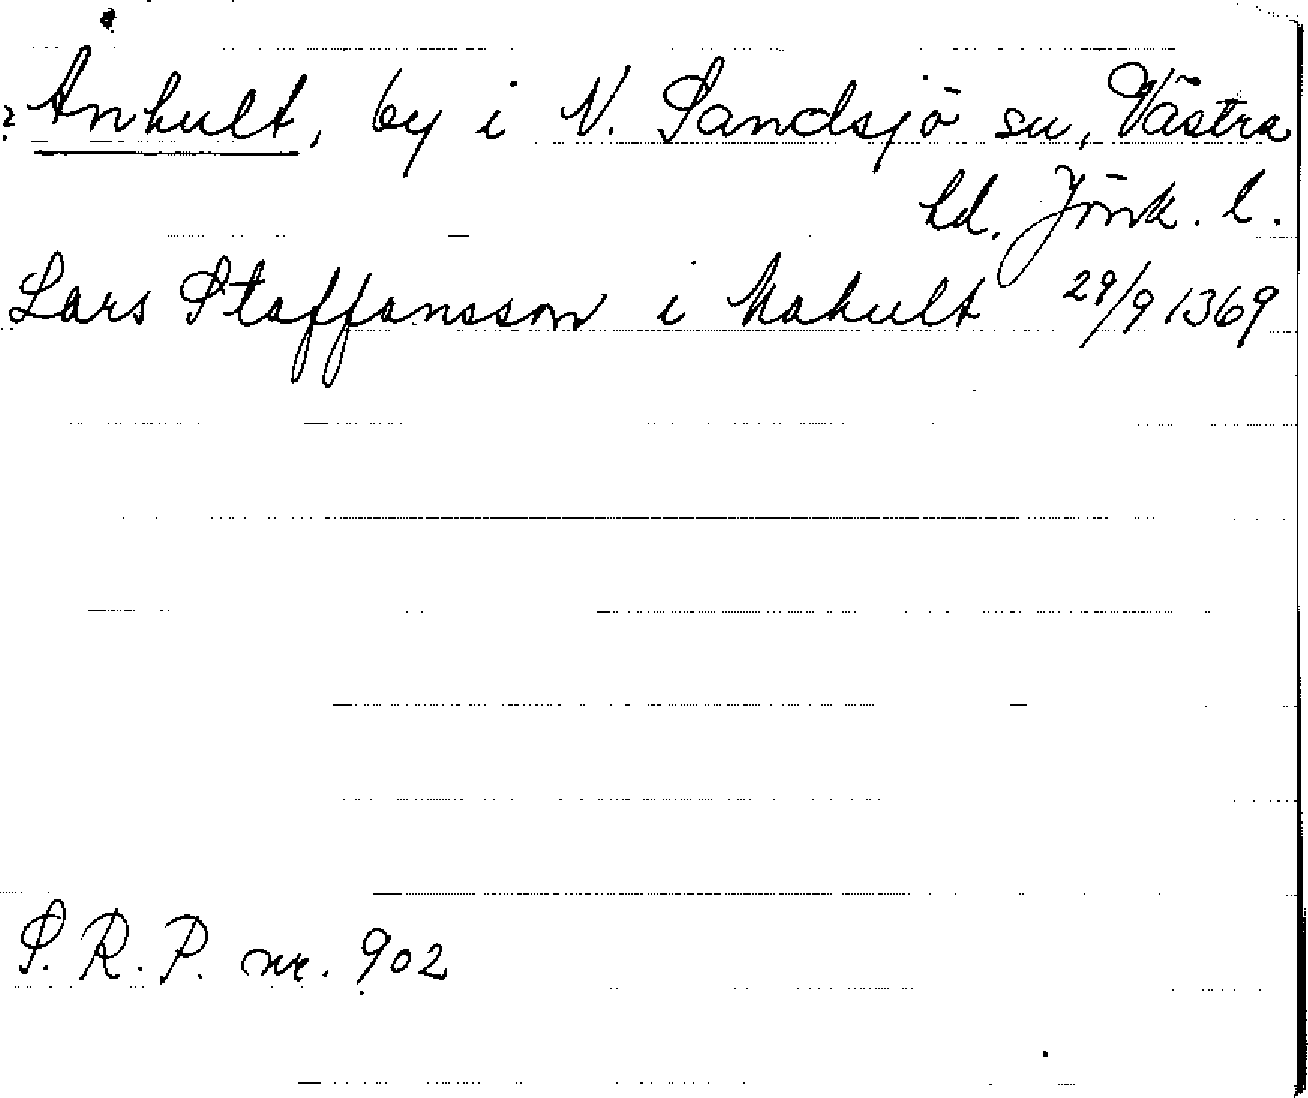 ? Anhult, by i N. Sandsjö sn, Västra
hd. Jönk. l.
Lars Staffansson i Nahult 29/9 1369
S.R.P. nr. 902